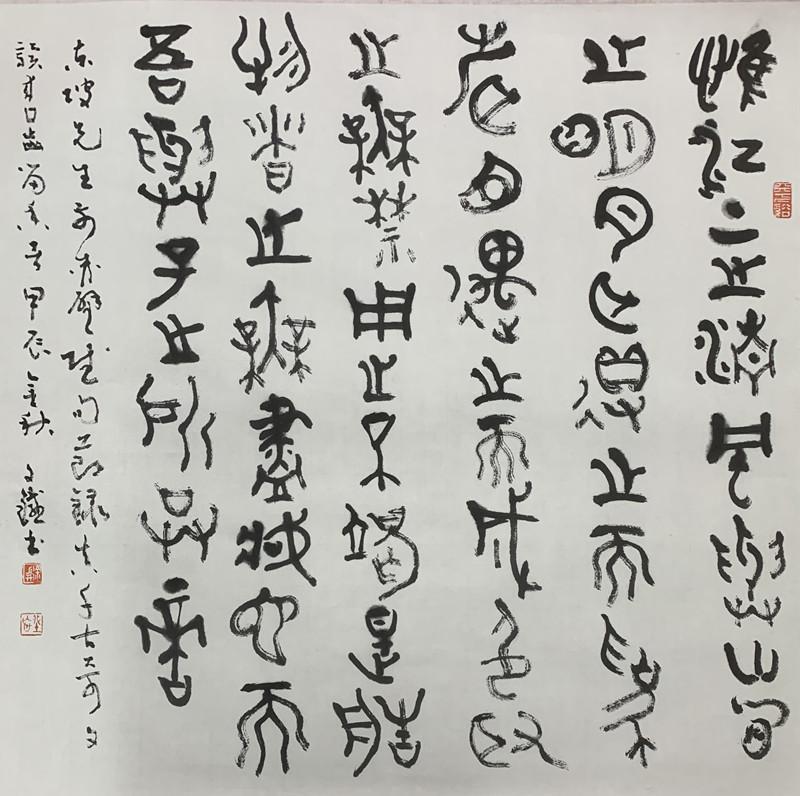 惟江上之清風與山間
之明月耳得之而為
聲目遇之而成色取
之無禁用之不竭是造
物者之無盡藏也而
吾與子之所共適
东坡先生前赤壁賦句節錄真千古奇文
讀來口齒留香甲辰金秋文書